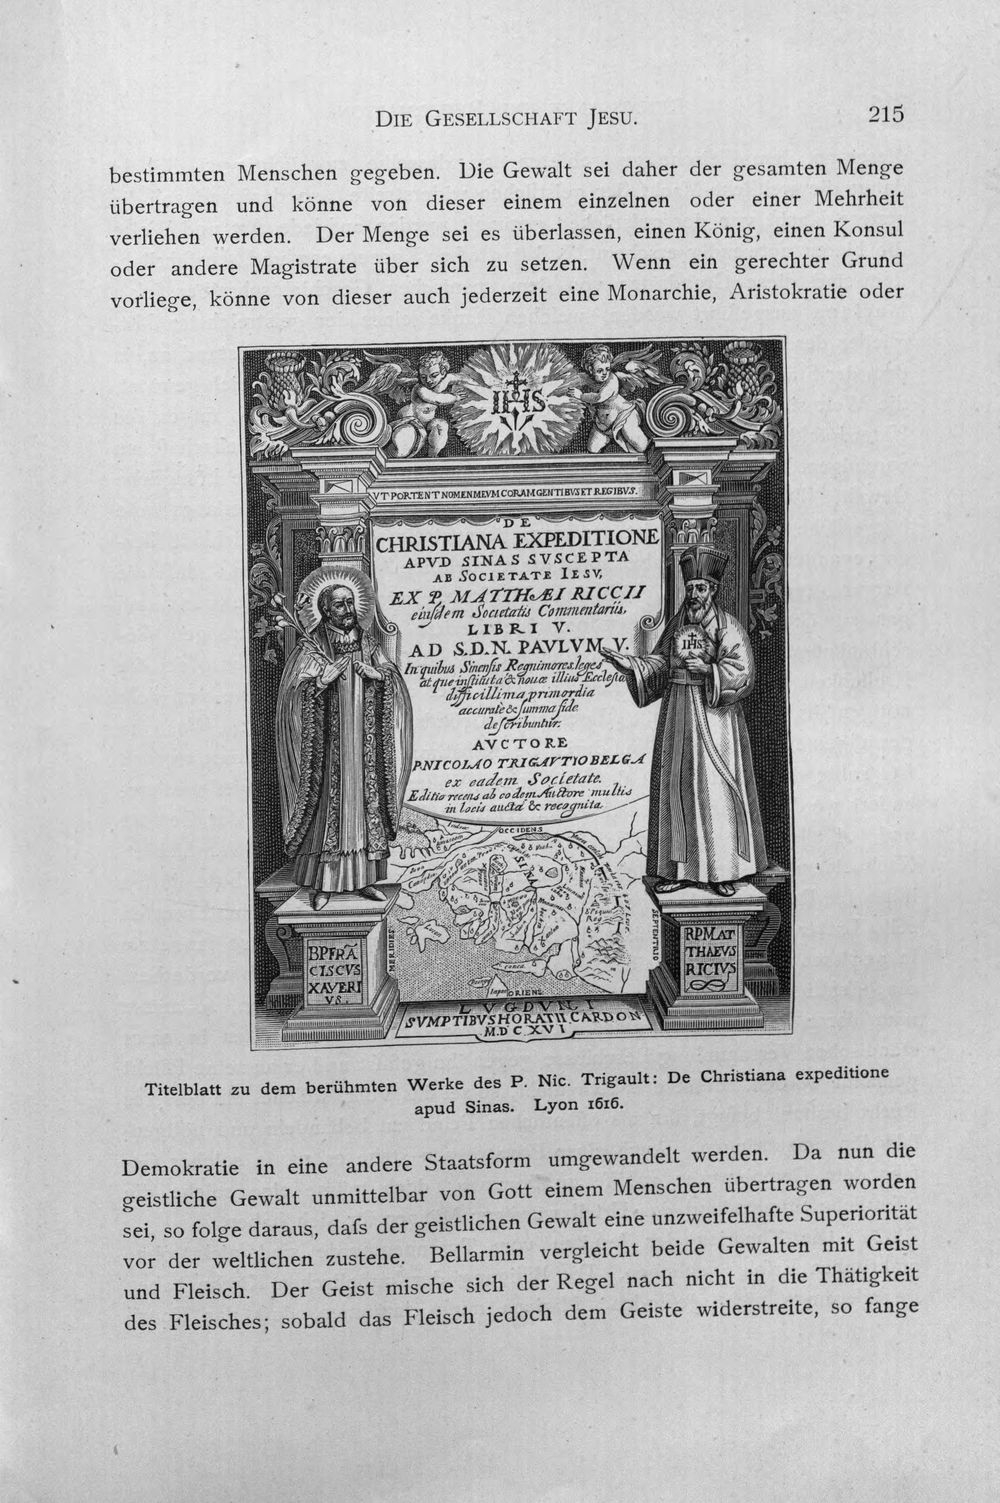 Die Gesellschaft Jesu. 215
bestimmten Menschen gegeben. Die Gewalt sei daher der gesamten Menge
übertragen und könne von dieser einem einzelnen oder einer Mehrheit
verliehen werden. Der Menge sei es überlassen, einen König, einen Konsul
oder andere Magistrate über sich zu setzen. Wenn ein gerechter Grund
vorliege, könne von dieser auch jederzeit eine Monarchie, Aristokratie oder
IHS
VT PORTENT NOMEN MEVM CORAM GENTIBVS ET REGIBVS.
DE
CHRISTIANA EXPEDITIONE
APVD SINAS SVSCEPTA
AB SOCIETATE IESV,
EX P. MATTHÆI RICCII
eiusdem Societatis Commentariis,
LIBRI V.
AD S.D.N. PAVLVM V.
In quibus Sinensis Regni mores, leges
atque instituta & nouæ illius Ecclesiæ
difficillima primordia
accurate & summa fide
describuntur.
AVCTORE
P. NICOLAO TRIGAVTIO BELGA
ex eadem Societate.
Editio recens ab eodem Auctore multis
in locis aucta & recognita.
IHS
OCCIDENS
MERIDIES
SEPTENTRIO
ORIENS
BPFRÃ
CISCVS
XAVERI
VS.
RPMAT
THAEVS
RICIVS
LVGDVNI
SVMPTIBVS HORATII CARDON
M.DC.XVI
Titelblatt zu dem berühmten Werke des P. Nic. Trigault: De Christiana expeditione
apud Sinas. Lyon 1616.
Demokratie in eine andere Staatsform umgewandelt werden. Da nun die
geistliche Gewalt unmittelbar von Gott einem Menschen übertragen worden
sei, so folge daraus, daſs der geistlichen Gewalt eine unzweifelhafte Superiorität
vor der weltlichen zustehe. Bellarmin vergleicht beide Gewalten mit Geist
und Fleisch. Der Geist mische sich der Regel nach nicht in die Thätigkeit
des Fleisches; sobald das Fleisch jedoch dem Geiste widerstreite, so fange